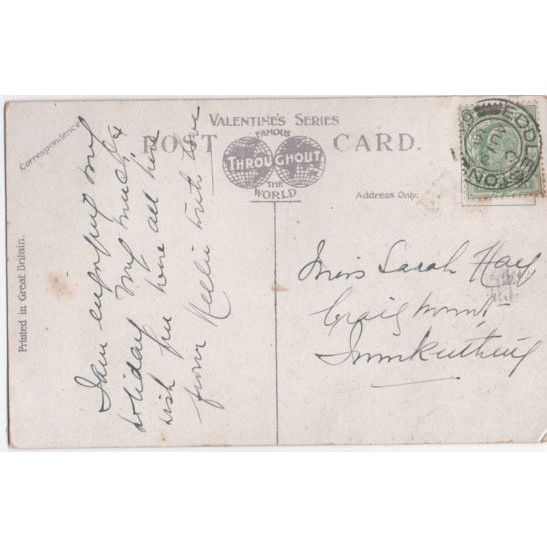 VALENTINE'S SERIES
FAMOUS
POST CARD.
THROUGHOUT
THE
WORLD
Correspondence.
Address Only.
Printed in Great Britain.
I am enjoying my
holiday very much &
wish you were all here
from Nellie with love
EDDLESTON
Miss Sarah Hay
Craigmount
Innerleithen